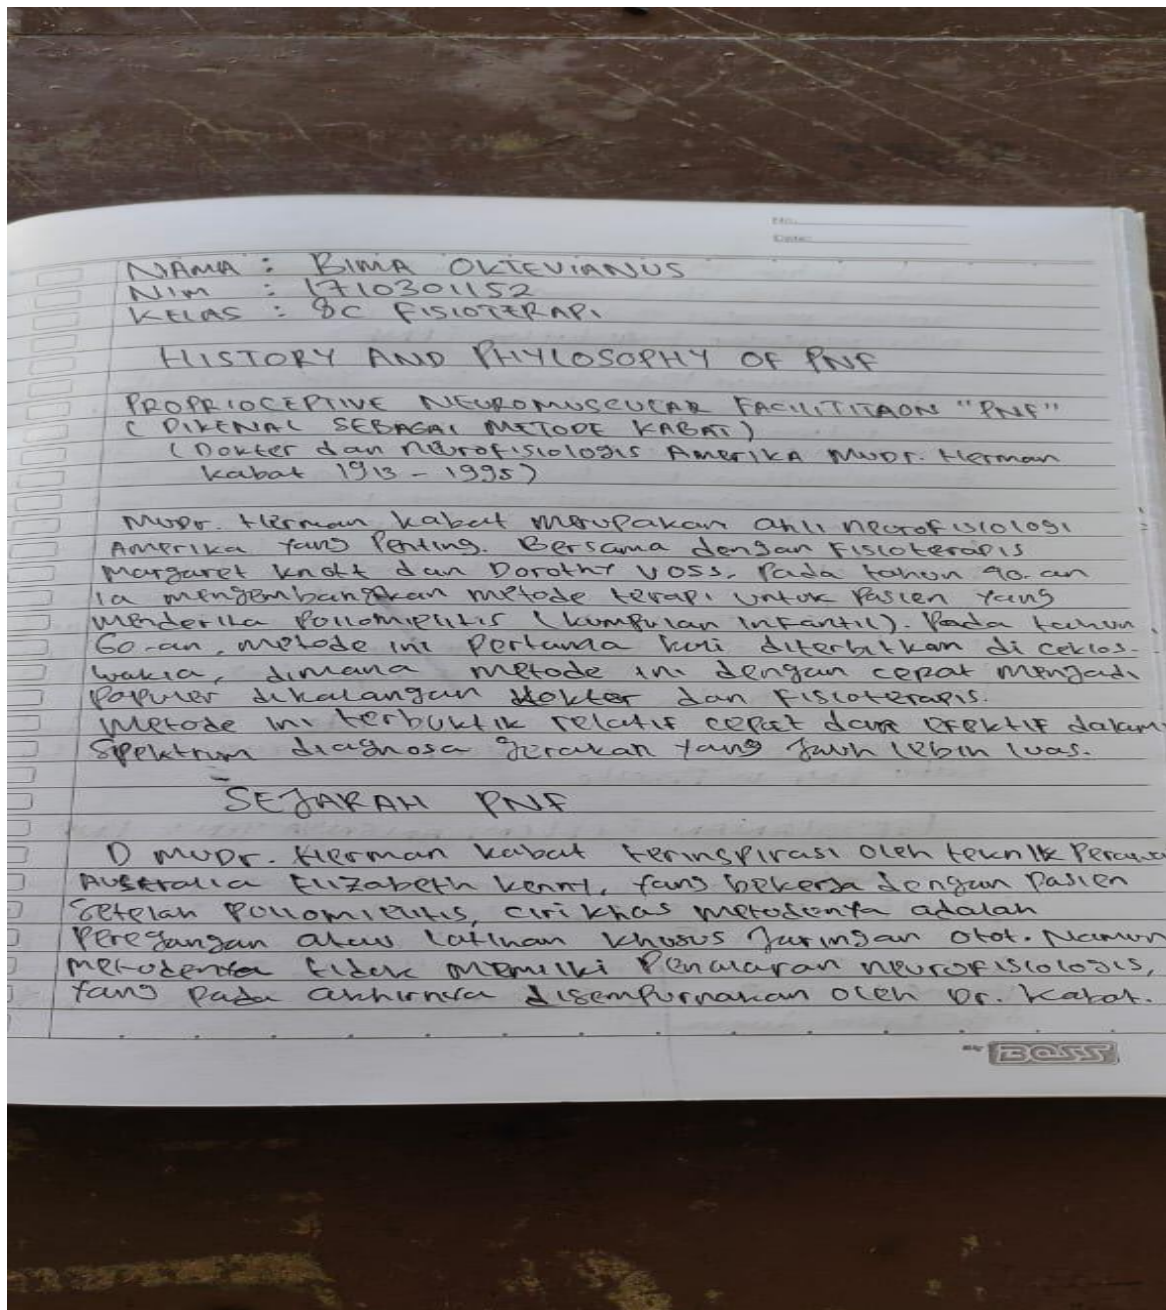 No.
Date:
NAMA : BIMA OKTEVIANUS
NIM : 1710301152
KELAS : 8C FISIOTERAPI
HISTORY AND PHYLOSOPHY OF PNF
PROPRIOCEPTIVE NEUROMUSCULAR FACILITITAON "PNF"
( DIKENAL SEBAGAI METODE KABAT)
(Dokter dan neurofisiologis Amerika MUDr. Herman
kabat 1913 - 1995)
MUDr. Herman kabat merupakan ahli neurofisiologi
Amerika yang Penting. Bersama dengan Fisioterapis
Margaret knott dan Dorothy Voss. Pada tahun 40.an
ia mengembangkan metode terapi untuk Pasien yang
menderita Poliomielitis (kumpulan infantil). Pada tahun
60-an, metode ini Pertama kali diterbitkan di ceklos-
wakia, dimana metode ini dengan cepat menjadi
Populer dikalangan dokter dan Fisioterapis.
Metode ini terbuktik relatif cepat dan efektif dalam
Spektrum diagnosa gerakan yang jauh lebih luas.
SEJARAH PNF
D MUDr. Herman kabat terinspirasi oleh teknik Perawa
Australia Elizabeth kenny, yang bekerja dengan Pasien
setelah Poliomielitis, ciri khas metodenya adalah
Peregangan atau latihan khusus Jaringan otot. Namun
metodenya tidak memilki Penalaran neurofisiologis,
yang Pada akhirnya disempurnakan oleh Dr. Kabat.
BOSS